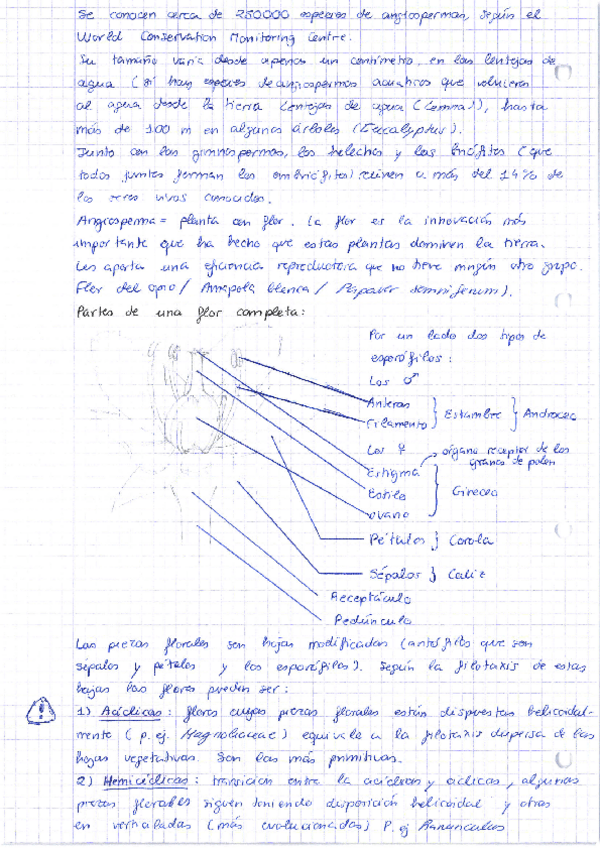 Se conocen cerca de 250000 especies de angiospermas, según el
World Conservation Monitoring Centre.
Su tamaño varia desde apenas un centímetro, en las lentejas de
agua (sí hay especies de angiospermas acuaticas que volvieron
al agua desde la tierra Lentejas de agua (Lemna)), hasta
más de 100 m en algunos árboles (Eucalyptus).
Junto con las gimnospermas, los helechos y los briófitos (que
todos juntos forman los embriófitos) reunen a más del 14% de
los seres vivos conocidos.
Angiosperma = planta con flor. La flor es la innovación más
importante que ha hecho que estas plantas dominen la tierra.
Les aporta una eficiencia reproductora que no tiene ningún otro grupo.
Flor del opio / Amapola blanca / Papaver somniferum).
Partes de una flor completa:
Por un lado dos tipos de
esporófilos:
Los ♂
Anteras
Filamento } Estambre } Androceo
Los ♀
Estigma → órgano receptor de los
granos de polen
Estilo } Gineceo
ovario
Pétalos } Corola
Sépalos } Caliz
Receptáculo
Pedúnculo
Las piezas florales son hojas modificadas (antófilos que son
sépalos y pétalos y los esporófilos). Según la filotaxis de estas
hojas las flores pueden ser:
1) Acíclicas: flores cuyas piezas florales están dispuestas helicoidal-
mente (p. ej. Magnoliaceae) equivale a la filotaxis dispersa de las
hojas vegetativas. Son las más primitivas.
2) Hemicíclicas: transicion entre la acíclicas y ciclicas, algunas
piezas florales siguen teniendo disposición helicoidal y otras
en verticiladas (más evolucionadas) P. ej Ranunculus